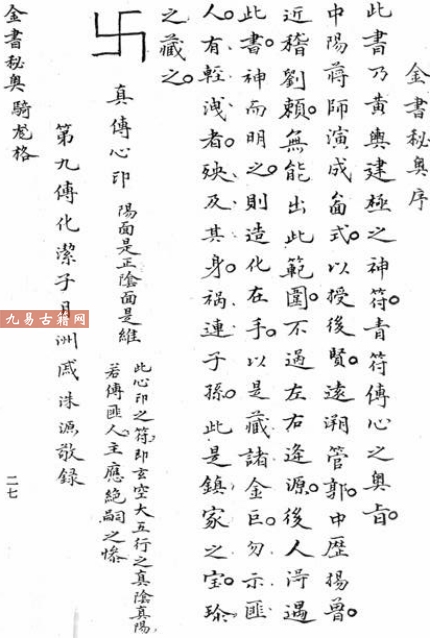 金書秘奥序
此書乃黃輿建極之神符。青符傳心之奥旨。
中陽蔣師演成畣式。以授後賢。遠溯管郭。中歷楊曾。
近稽劉賴。無能出此範圍。不過左右逢源。後人淂遇
此書。神而明之。則造化在手。以是藏諸金匚。勿示匪
人。有輕洩者。殃及其身。祸連子孫。此是鎮家之宝。珍
之藏之。
卐
真傳心印
陽面是正陰面是維
此心印之符。即玄空大五行之真陰真陽。
若傳匪人。主應絶嗣之惨
第九傳化潔子月洲戚洙源敬録
金書秘奥 騎龙格
二七
九易古籍网